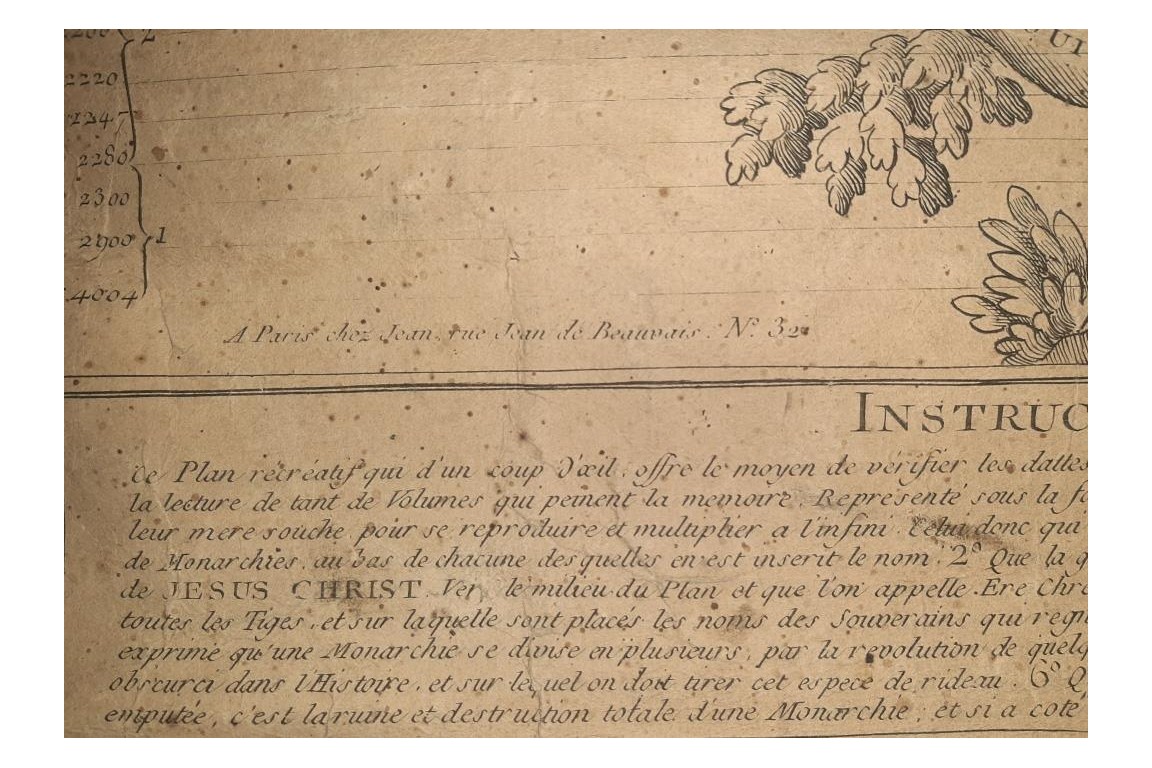 2
2220
2247
2280
2300
2900 1
4004
A Paris chez Jean, rue Jean de Beauvais. N.º 32.
INSTRUC
Ce Plan récréatif qui d'un coup d'œil, offre le moyen de vérifier les dattes
la lecture de tant de Volumes qui peinent la memoire. Représenté sous la fo
leur mere souche pour se reproduire et multiplier a l'infini. Celui donc qui
de Monarchies, au bas de chacune desquelles en est inserit le nom. 2º Que la q
de JESUS CHRIST. Ver, le milieu du Plan et que l'on appelle Ere Chré
toutes les Tiges, et sur laquelle sont placés les noms des Souverains qui regn
exprime qu'une Monarchie se divise en plusieurs, par la revolution de quelq
obscurci dans l'Histoire, et sur lequel on doit tirer cet espece de rideau. 6º Q
emputée, c'est la ruine et destruction totale d'une Monarchie, et si a coté